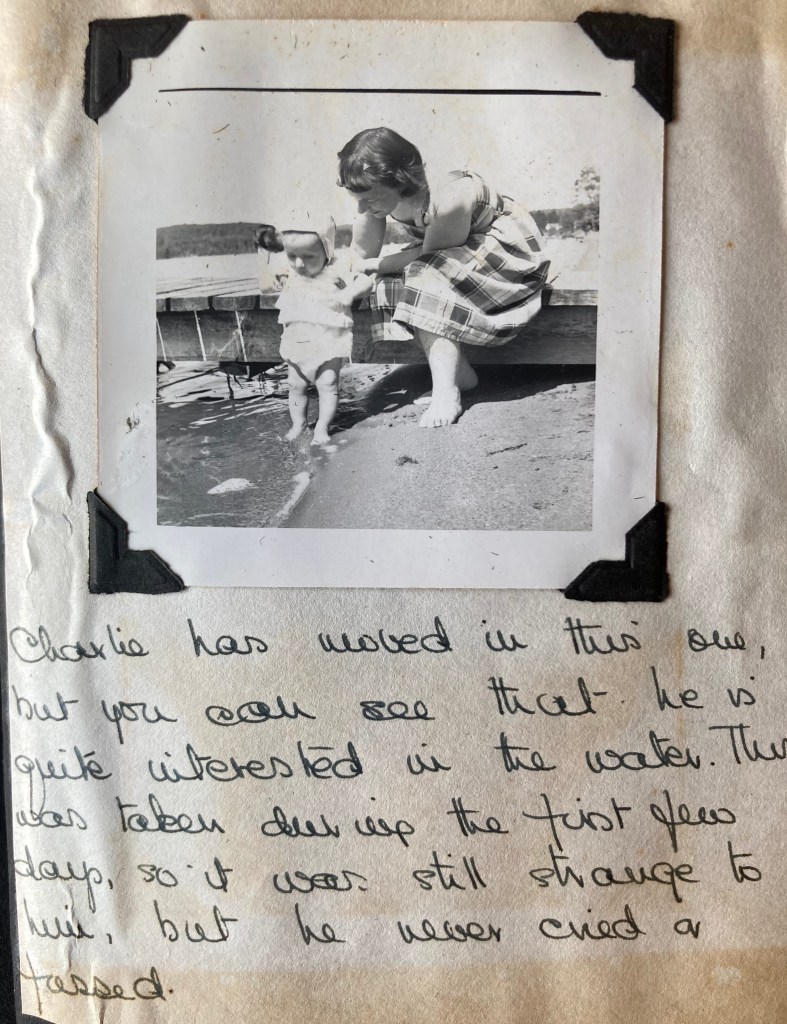 Charlie has moved in this one,
but you can see that he is
quite interested in the water. This
was taken during the first few
days, so it was still strange to
him, but he never cried or
fussed.